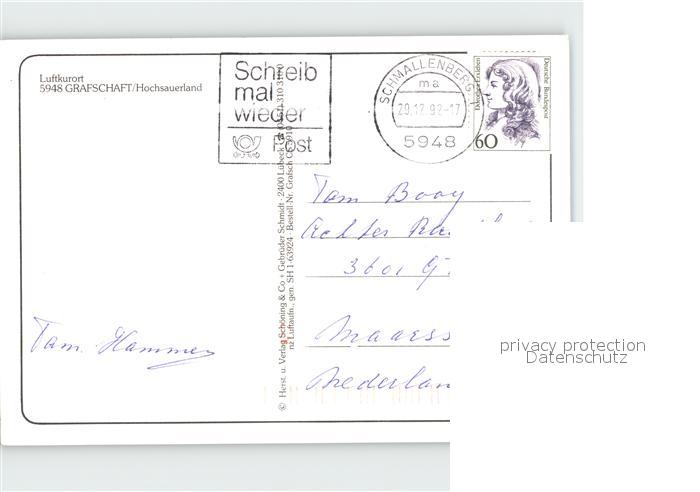 Luftkurort
5948 GRAFSCHAFT/Hochsauerland
Schreib
mal
wieder
Post
SCHMALLENBERG 1
ma
29.12.92-17
5948
Deutsche Bundespost
60
Tam Booy
Achter
3601 G.
Maarss
Nederlan
Tam. Hammer
© Herst. u. Verlag Schöning & Co + Gebrüder Schmidt · 2400 Lübeck
nz Luftaufn., gen. SH 1-63924 · Bestell-Nr. Grafsch
privacy protection
Datenschutz